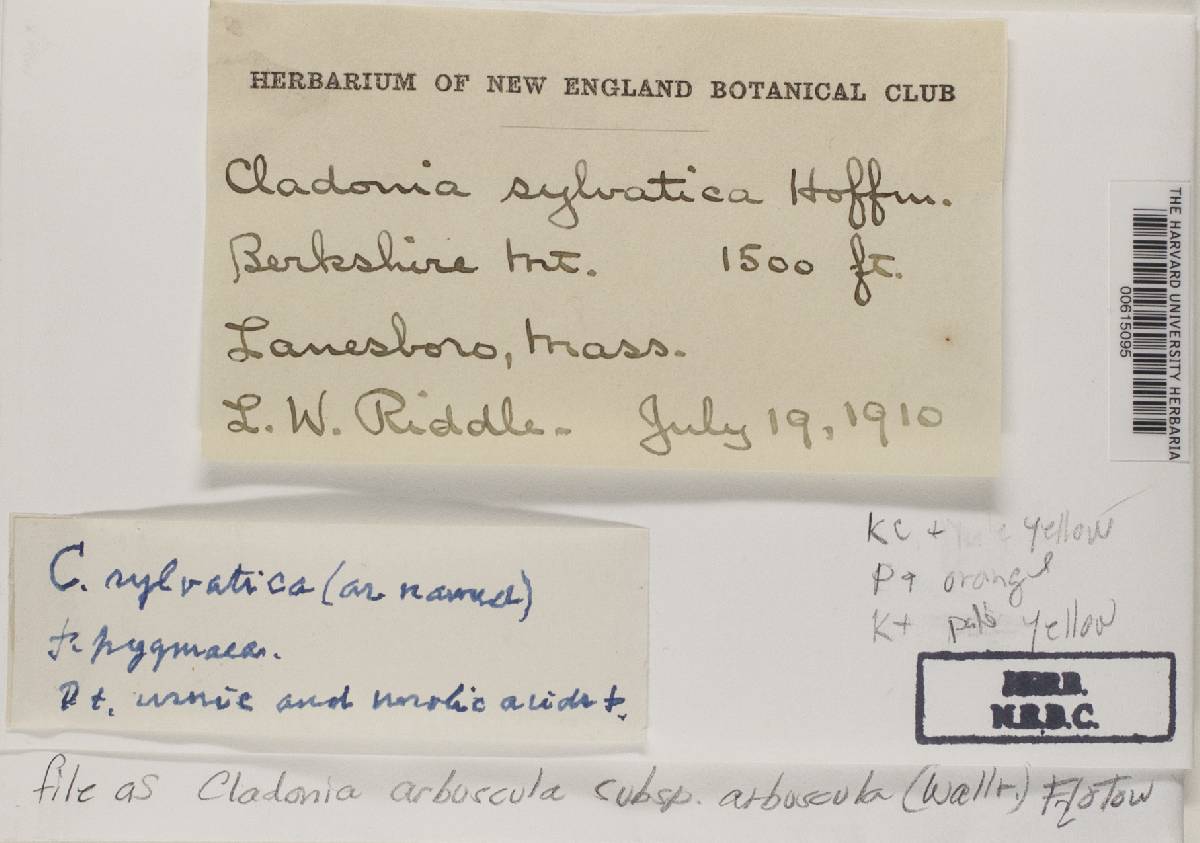 HERBARIUM OF NEW ENGLAND BOTANICAL CLUB
Cladonia sylvatica Hoffm.
Berkshire Mt. 1500 ft.
Lanesboro, Mass.
L. W. Riddle. July 19, 1910
THE HARVARD UNIVERSITY HERBARIA
00615095
C. sylvatica (as named)
f. pygmaea.
P+, usnic and acids +.
KC + yellow
P+ orange
K+ pale yellow
HERB.
N.E.B.C.
file as Cladonia arbuscula subsp. arbuscula (Wallr.) Flotow